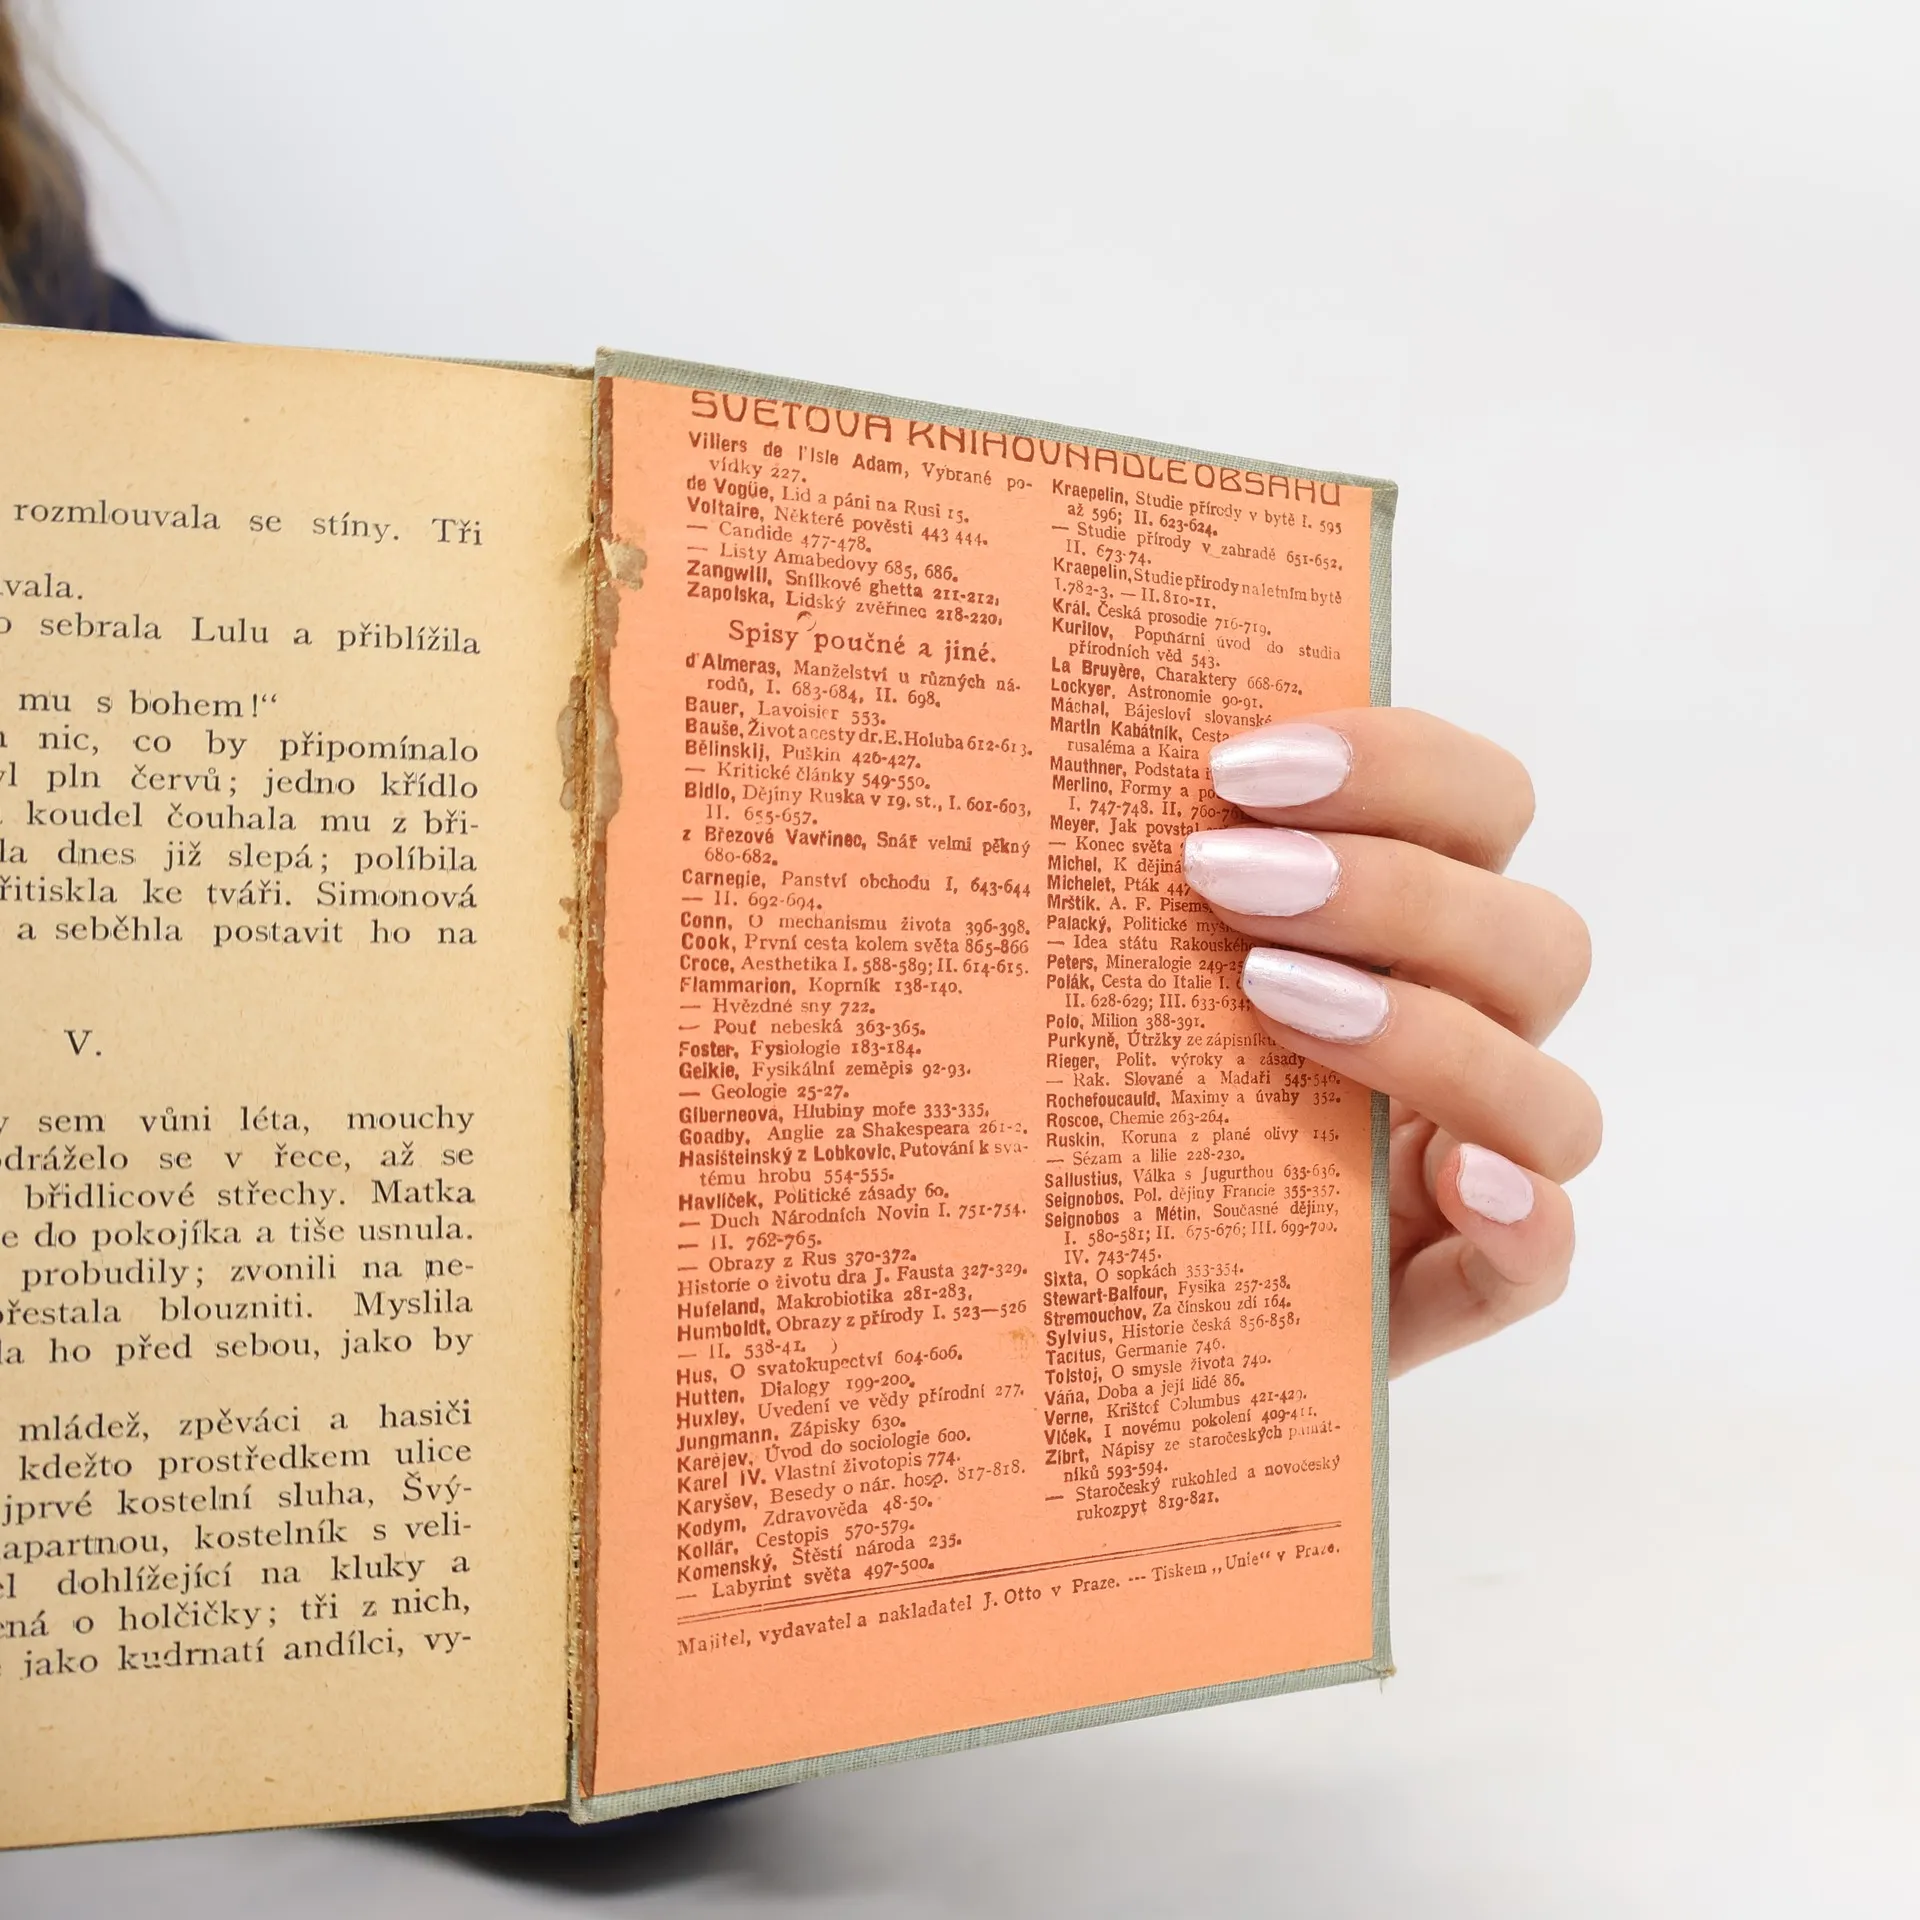 rozmlouvala se stíny. Tři
vala.
sebrala Lulu a přiblížila
mu s bohem!“
nic, co by připomínalo
pln červů; jedno křídlo
koudel čouhala mu z bři-
dnes již slepá; políbila
řitiskla ke tváři. Simonová
a seběhla postavit ho na
V.
sem vůni léta, mouchy
odráželo se v řece, až se
břidlicové střechy. Matka
do pokojíka a tiše usnula.
probudily; zvonili na ne-
přestala blouzniti. Myslila
ho před sebou, jako by
mládež, zpěváci a hasiči
kdežto prostředkem ulice
jprvé kostelní sluha, Švý-
apartnou, kostelník s veli-
dohlížející na kluky a
o holčičky; tři z nich,
jako kudrnatí andílci, vy-
SVĚTOVÁ KNIHOVNA DLE OBSAHU
Villers de l'Isle Adam, Vybrané po-
vídky 227.
de Vogüe, Lid a páni na Rusi 15.
Voltaire, Některé pověsti 443 444.
— Candide 477-478.
— Listy Amabedovy 685, 686.
Zangwill, Snílkové ghetta 211-212,
Zapolska, Lidský zvěřinec 218-220,
Spisy poučné a jiné.
d'Almeras, Manželství u různých ná-
rodů, I. 683-684, II. 698.
Bauer, Lavoisier 553.
Bauše, Život a cesty dr. E. Holuba 612-613.
Bělinskij, Puškin 426-427.
— Kritické články 549-550.
Bidlo, Dějiny Ruska v 19. st., I. 601-603,
II. 655-657.
z Březové Vavřinec, Snář velmi pěkný
680-682.
Carnegie, Panství obchodu I, 643-644
— II. 692-694.
Conn, O mechanismu života 396-398.
Cook, První cesta kolem světa 865-866
Croce, Aesthetika I. 588-589; II. 614-615.
Flammarion, Koprník 138-140.
— Hvězdné sny 722.
— Pouť nebeská 363-365.
Foster, Fysiologie 183-184.
Geikie, Fysikální zeměpis 92-93.
— Geologie 25-27.
Giberneová, Hlubiny moře 333-335,
Goadby, Anglie za Shakespeara 261-2.
Hasišteinský z Lobkovic, Putování k sva-
tému hrobu 554-555.
Havlíček, Politické zásady 60.
— Duch Národních Novin I. 751-754.
— II. 762-765.
— Obrazy z Rus 370-372.
Historie o životu dra J. Fausta 327-329.
Hufeland, Makrobiotika 281-283,
Humboldt, Obrazy z přírody I. 523—526
— II. 538-41.
Hus, O svatokupectví 604-606.
Hutten, Dialogy 199-200.
Huxley, Uvedení ve vědy přírodní 277.
Jungmann, Zápisky 630.
Karějev, Úvod do sociologie 600.
Karel IV. Vlastní životopis 774.
Karyšev, Besedy o nár. hosp. 817-818.
Kodym, Zdravověda 48-50.
Kollár, Cestopis 570-579.
Komenský, Štěstí národa 235.
— Labyrint světa 497-500.
Kraepelin, Studie přírody v bytě I. 595
až 596; II. 623-624.
— Studie přírody v zahradě 651-652,
II. 673-74.
Kraepelin, Studie přírody na letním bytě
I. 782-3. — II. 810-11.
Král. Česká prosodie 716-719.
Kurilov, Populární úvod do studia
přírodních věd 543.
La Bruyère, Charaktery 668-672.
Lockyer, Astronomie 90-91.
Máchal, Bájesloví slovanské
Martin Kabátník, Cesta
rusaléma a Kaira
Mauthner, Podstata
Merlino, Formy a
I. 747-748. II, 760-76
Meyer, Jak povstal
— Konec světa
Michel, K dějiná
Michelet, Pták 447
Mrštík. A. F. Pisems
Palacký, Politické
— Idea státu Rakouského
Peters, Mineralogie 249-
Polák, Cesta do Italie I.
II. 628-629; III. 633-634;
Polo, Milion 388-391.
Purkyně, Útržky ze zápisníku
Rieger, Polit. výroky a zásady
— Rak. Slované a Maďaři 545-546.
Rochefoucauld, Maximy a úvahy 352.
Roscoe, Chemie 263-264.
Ruskin, Koruna z plané olivy 145.
— Sézam a lilie 228-230.
Sallustius, Válka s Jugurthou 635-636.
Seignobos, Pol. dějiny Francie 355-357.
Seignobos a Métin, Současné dějiny,
I. 580-581; II. 675-676; III. 699-700.
IV. 743-745.
Sixta, O sopkách 353-354.
Stewart-Balfour, Fysika 257-258.
Stremouchov, Za čínskou zdí 164.
Sylvius, Historie česká 856-858,
Tacitus, Germanie 746.
Tolstoj, O smysle života 740.
Váňa, Doba a její lidé 86.
Verne, Krištof Columbus 421-429.
Vlček, I novému pokolení 409-411.
Zíbrt, Nápisy ze staročeských památ-
níků 593-594.
— Staročeský rukohled a novočeský
rukozpyt 819-821.
Majitel, vydavatel a nakladatel J. Otto v Praze. --- Tiskem „Unie“ v Praze.